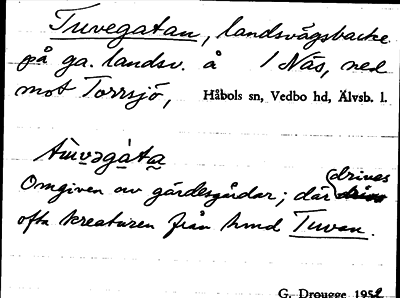 Tuvegatan, landsvägsbacke
på ga. landsv. å 1 Näs, ned
mot Torrsjö, Håbols sn, Vedbo hd, Älvsb. l.
tùvəgàta
Omgiven av gärdesgårdar; där drives
ofta kreaturen från hmd Tuvan.
G. Drougge 1952